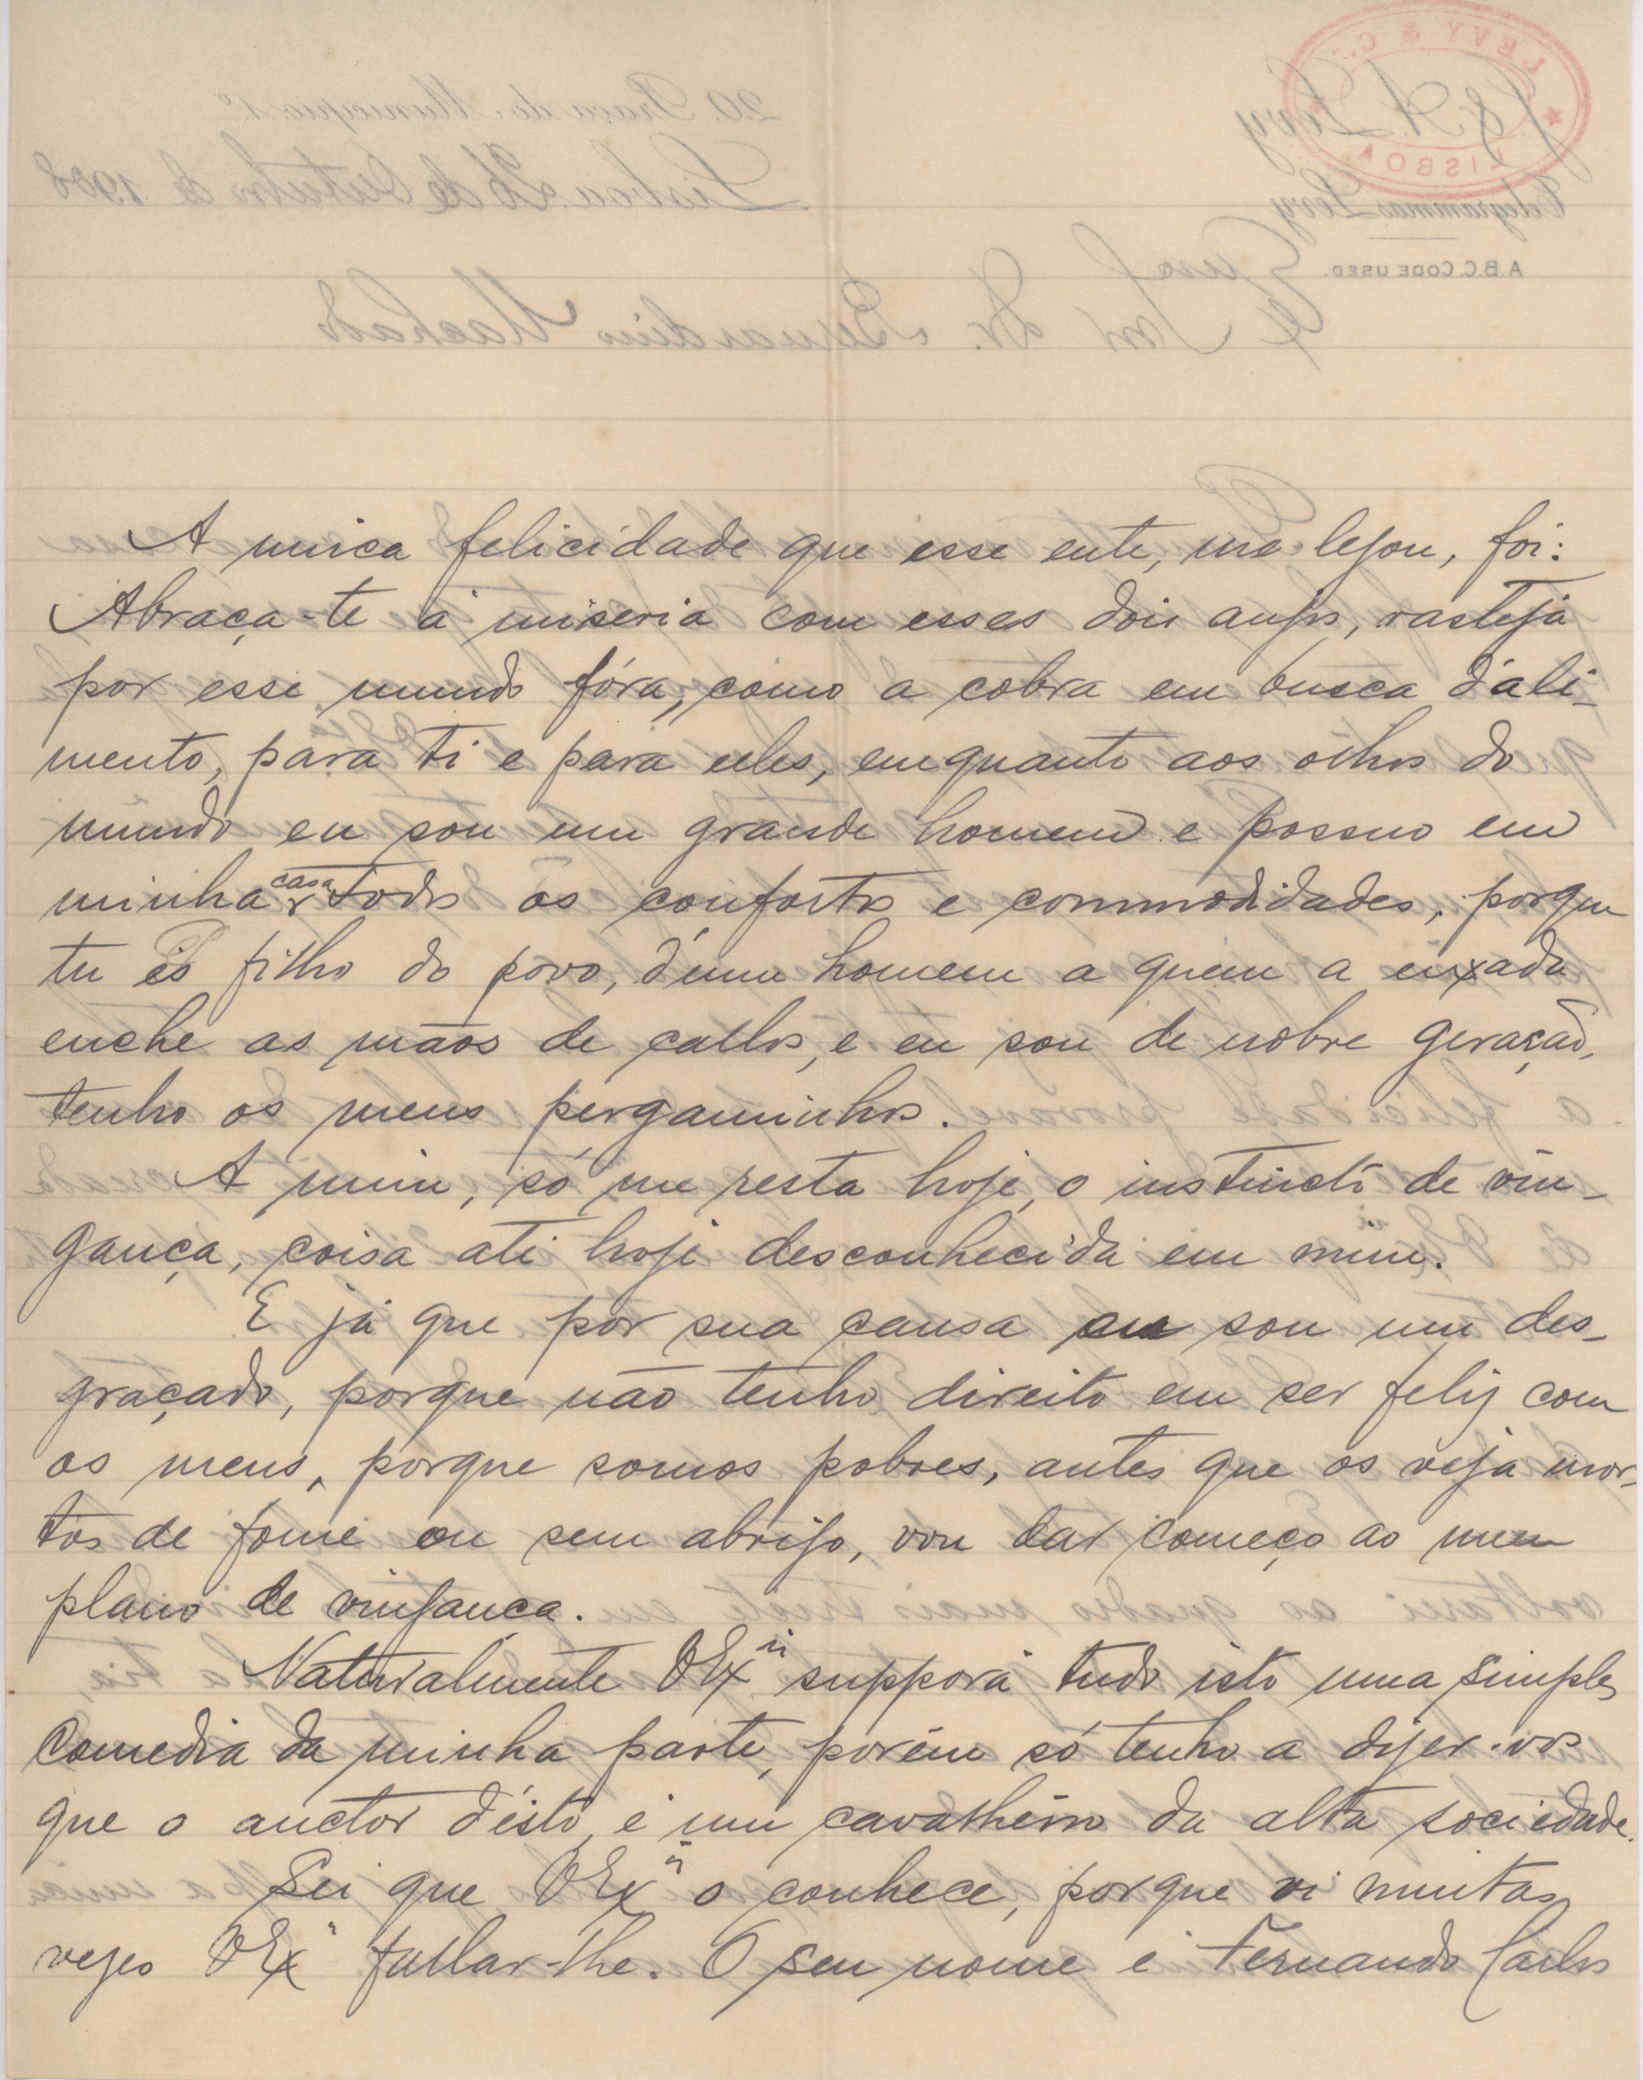 A unica felicidade que esse ente, me legou, foi:
Abraça-te á miseria com esses dois anjos, rasteja
por esse mundo fóra, como a cobra em busca d'ali-
mento, para ti e para elles, emquanto aos olhos do
mundo eu sou um grande homem e possuo em
minha casa todos os confortos e commodidades, porque
tu és filho do povo, d'um homem a quem a enxada
enche as mãos de callos, e eu sou de nobre geração,
tenho os meus pergaminhos.
A mim, só me resta hoje, o instincto de vin-
gança, coisa até hoje desconhecida em mim.
E já que por sua causa eu sou um des-
graçado, porque não tenho direito em ser feliz com
os meus, porque somos pobres, antes que os veja mor-
tos de fome ou sem abrigo, vou dar começo ao meu
plano de vingança.
Naturalmente VExª supporá tudo isto uma simples
comedia da minha parte, porém só tenho a dizer-vos
que o auctor d'isto, é um cavalheiro da alta sociedade.
Sei que VExª o conhece, porque vi muitas
vezes VExª fallar-lhe. O seu nome é Fernando Carlos